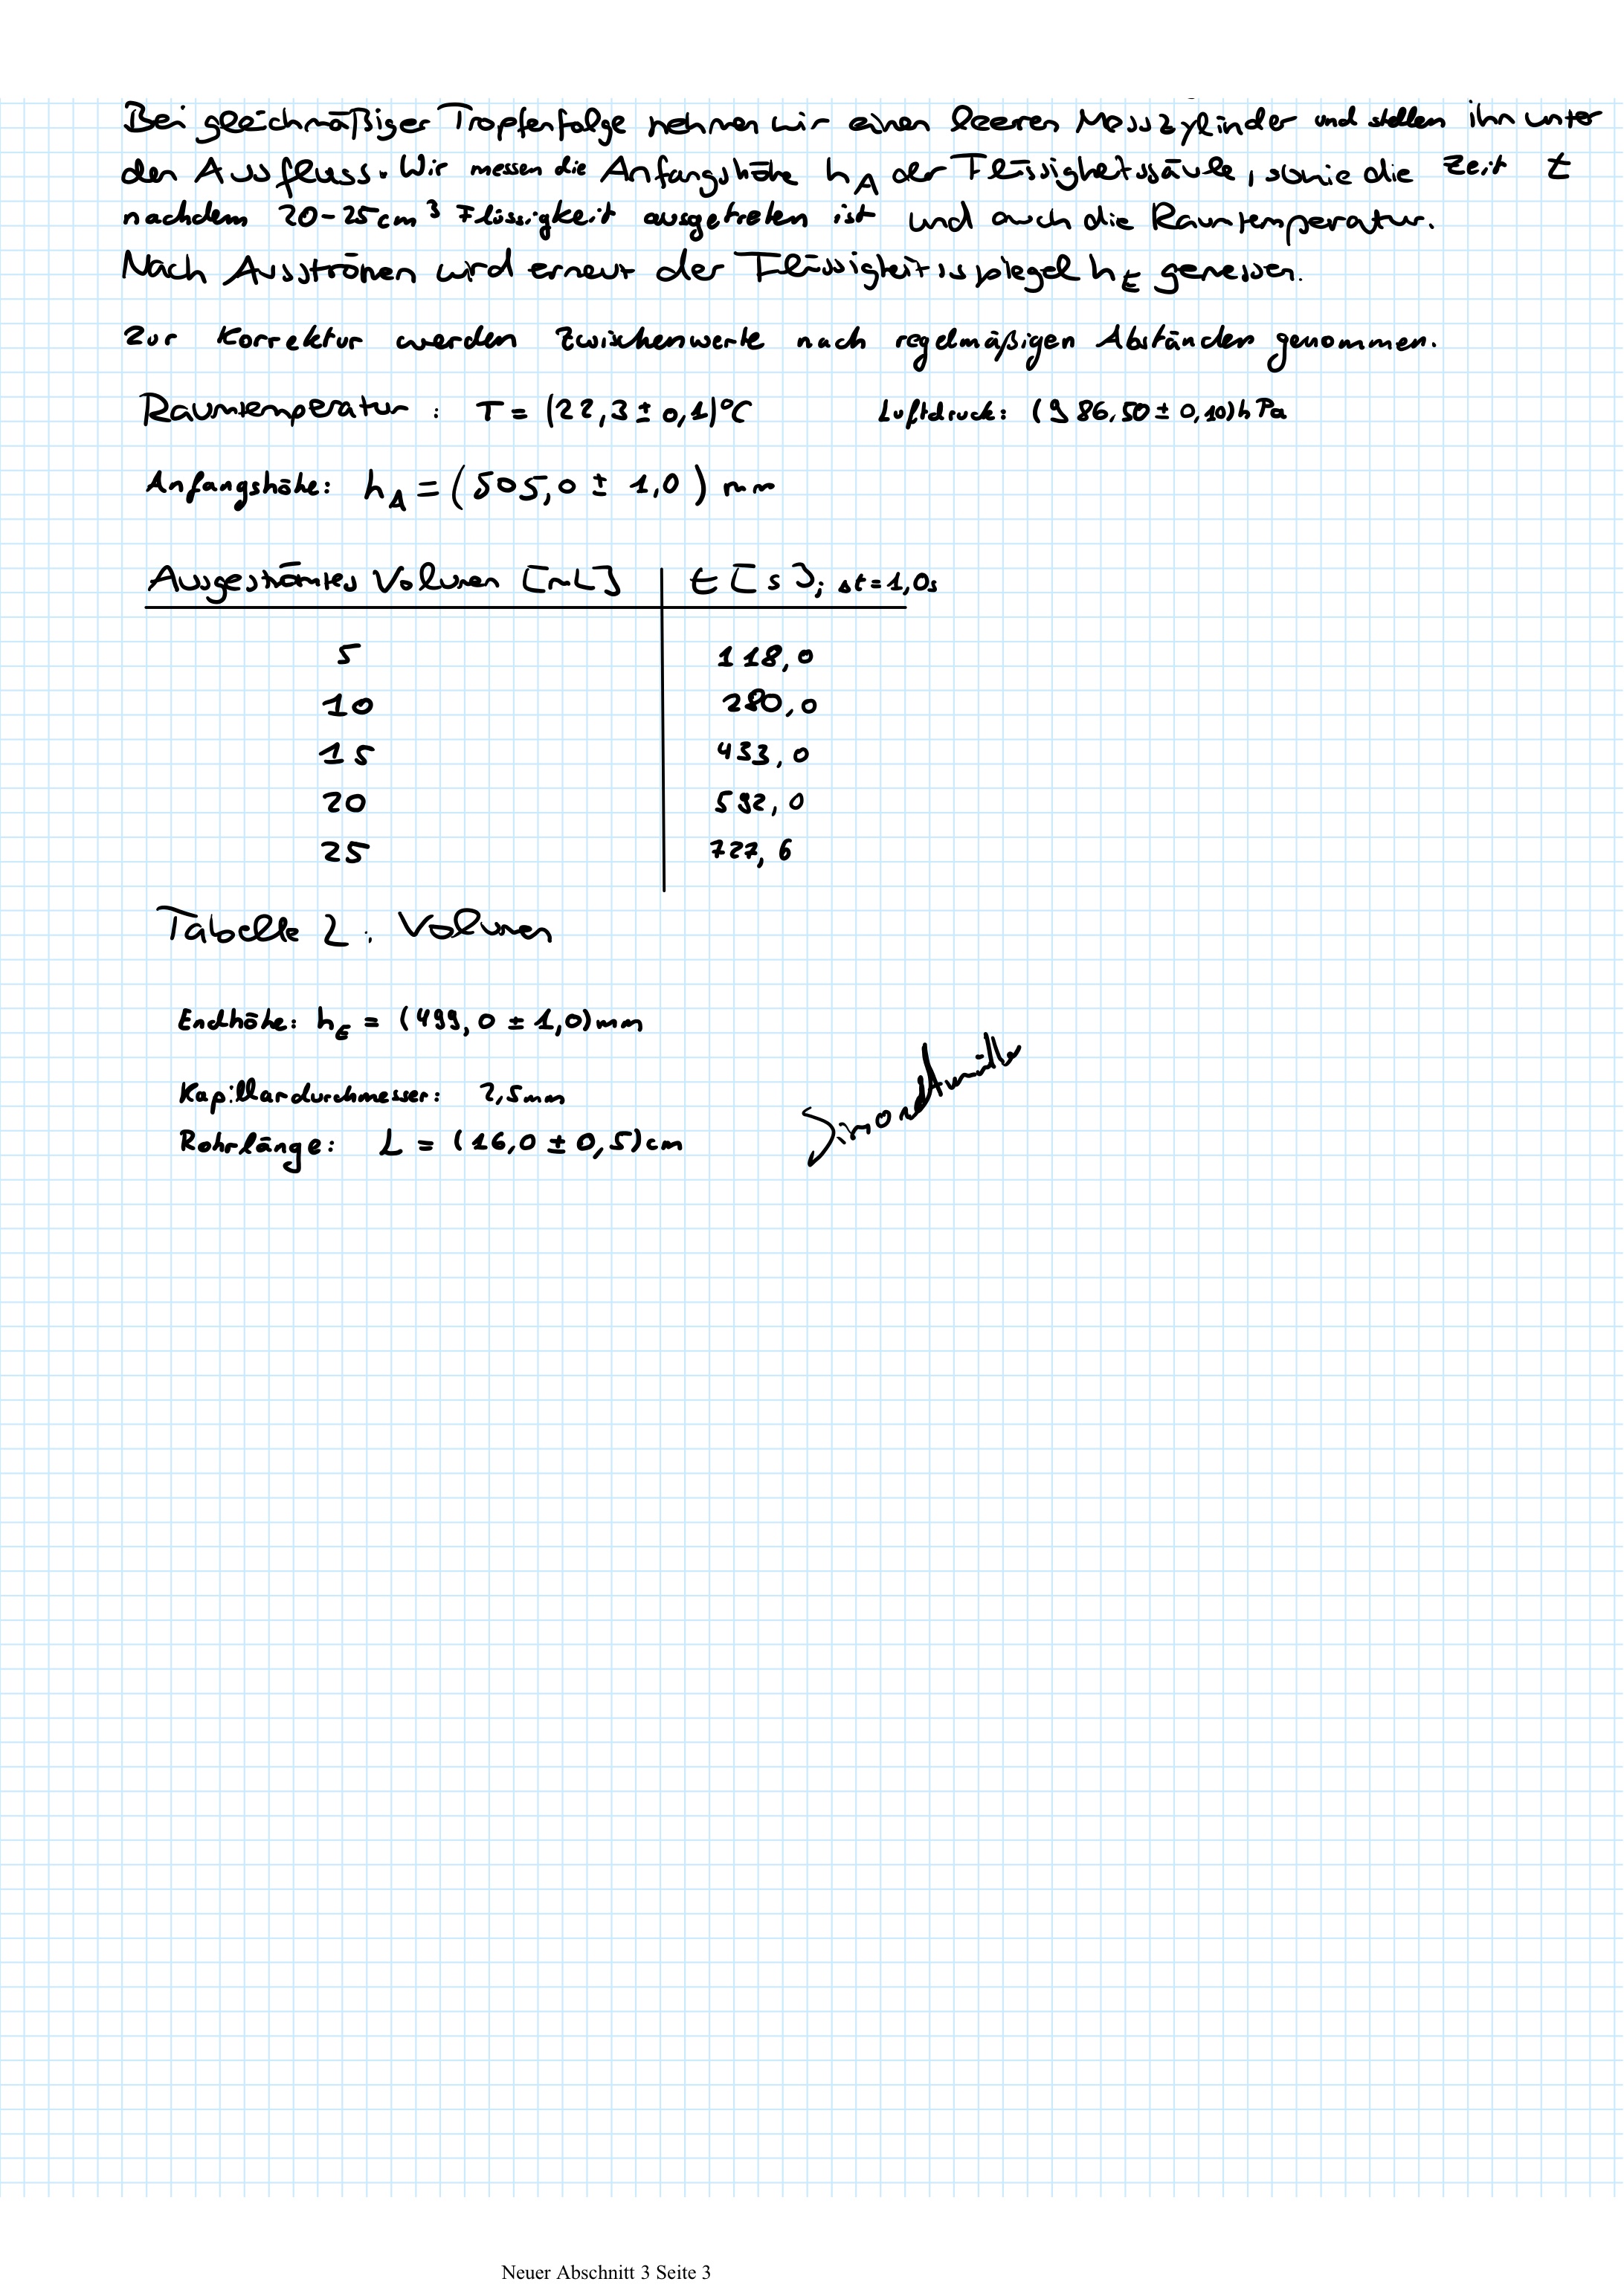 Bei gleichmäßiger Tropfenfolge nehmen wir einen leeren Messzylinder und stellen ihn unter
den Ausfluss. Wir messen die Anfangshöhe h_A der Flüssigkeitssäule, sowie die Zeit t
nachdem 20-25cm³ Flüssigkeit ausgetreten ist und auch die Raumtemperatur.
Nach Ausströmen wird erneut der Flüssigkeitsspiegel h_E gemessen.
Zur Korrektur werden Zwischenwerte nach regelmäßigen Abständen genommen.
Raumtemperatur: T = (22,3 ± 0,1)°C Luftdruck: (986,50 ± 0,10)hPa
Anfangshöhe: h_A = (505,0 ± 1,0) mm
Ausgeströmtes Volumen [mL] t [s]; Δt = 1,0s
5 118,0
10 280,0
15 433,0
20 592,0
25 727,6
Tabelle 2: Volumen
Endhöhe: h_E = (499,0 ± 1,0)mm
Kapillardurchmesser: 2,5mm
Rohrlänge: L = (16,0 ± 0,5)cm
Neuer Abschnitt 3 Seite 3